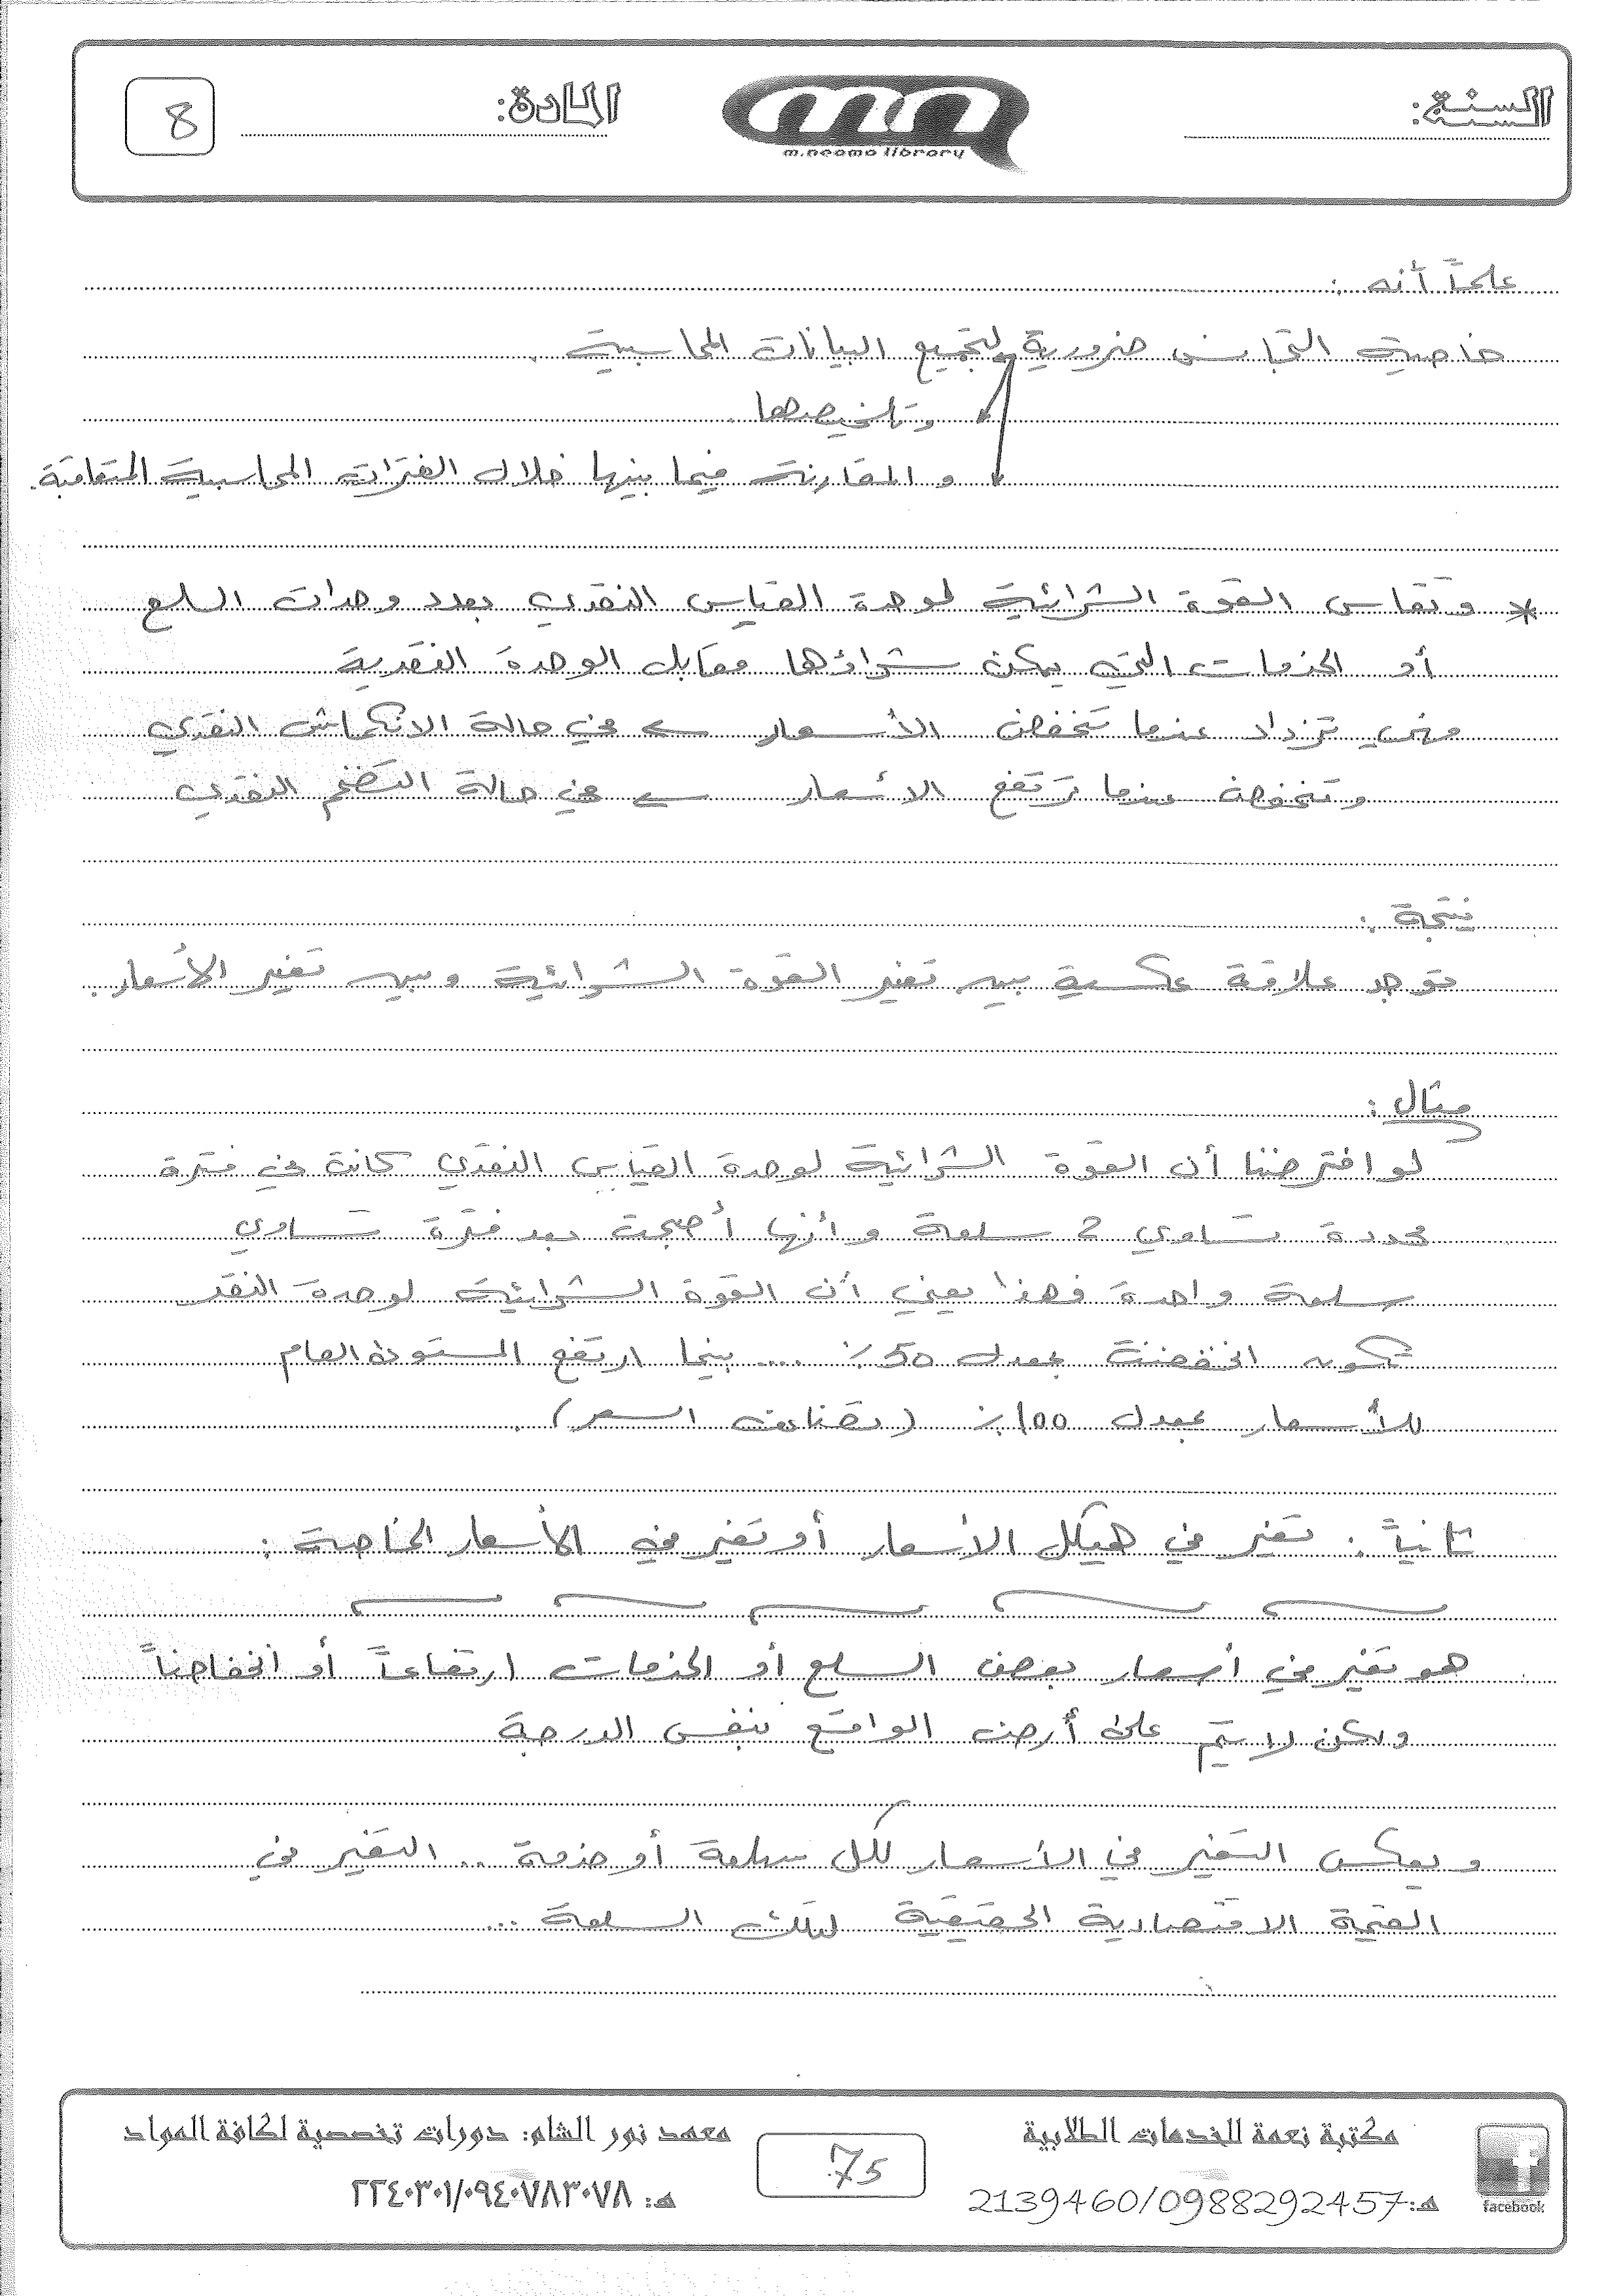 السنة:
m.neama library
المادة:
8
علماً أنه :
خاصية التجانس ضرورية لتجميع البيانات المحاسبية .
وتلخيصها
و المقارنة فيما بينها خلال الفترات المحاسبية المتعاقبة.
* وتقاس القوة الشرائية لوحدة القياس النقدي بعدد وحدات السلع
أو الخدمات التي يمكن شراؤها مقابل الوحدة النقدية
فهي تزداد عندما تنخفض الأسعار ← في حالة الانكماش النقدي
وتنخفض عندما ترتفع الأسعار ← في حالة التضخم النقدي
نتيجة :
توجد علاقة عكسية بين تغير القوة الشرائية وبين تغير الأسعار.
مثال :
لو افترضنا أن القوة الشرائية لوحدة القياس النقدي كانت في فترة
محددة تساوي 2 سلعة وأنها أصبحت بعد فترة تساوي
سلعة واحدة فهذا يعني أن القوة الشرائية لوحدة النقد
تكون انخفضت بمعدل 50٪ .... بينما ارتفع المستوى العام
للأسعار بمعدل 100٪ (تضاعف السعر) .
ثانياً : تغير في هيكل الأسعار أو تغير في الأسعار الخاصة :
هو تغير في أسعار بعض السلع أو الخدمات ارتفاعاً أو انخفاضاً
ولكن لا يتم على أرض الواقع بنفس الدرجة
ويعكس التغير في الأسعار لكل سلعة أو خدمة .. التغير في
القيمة الاقتصادية الحقيقية لتلك السلعة ...
مكتبة نعمة للخدمات الطلابية
هـ: 2139460/0988292457
facebook
75
معهد نور الشام: دورات تخصصية لكافة المواد
هـ: ٢٢٤٠٣٠١/٠٩٤٠٧٨٣٠٧٨